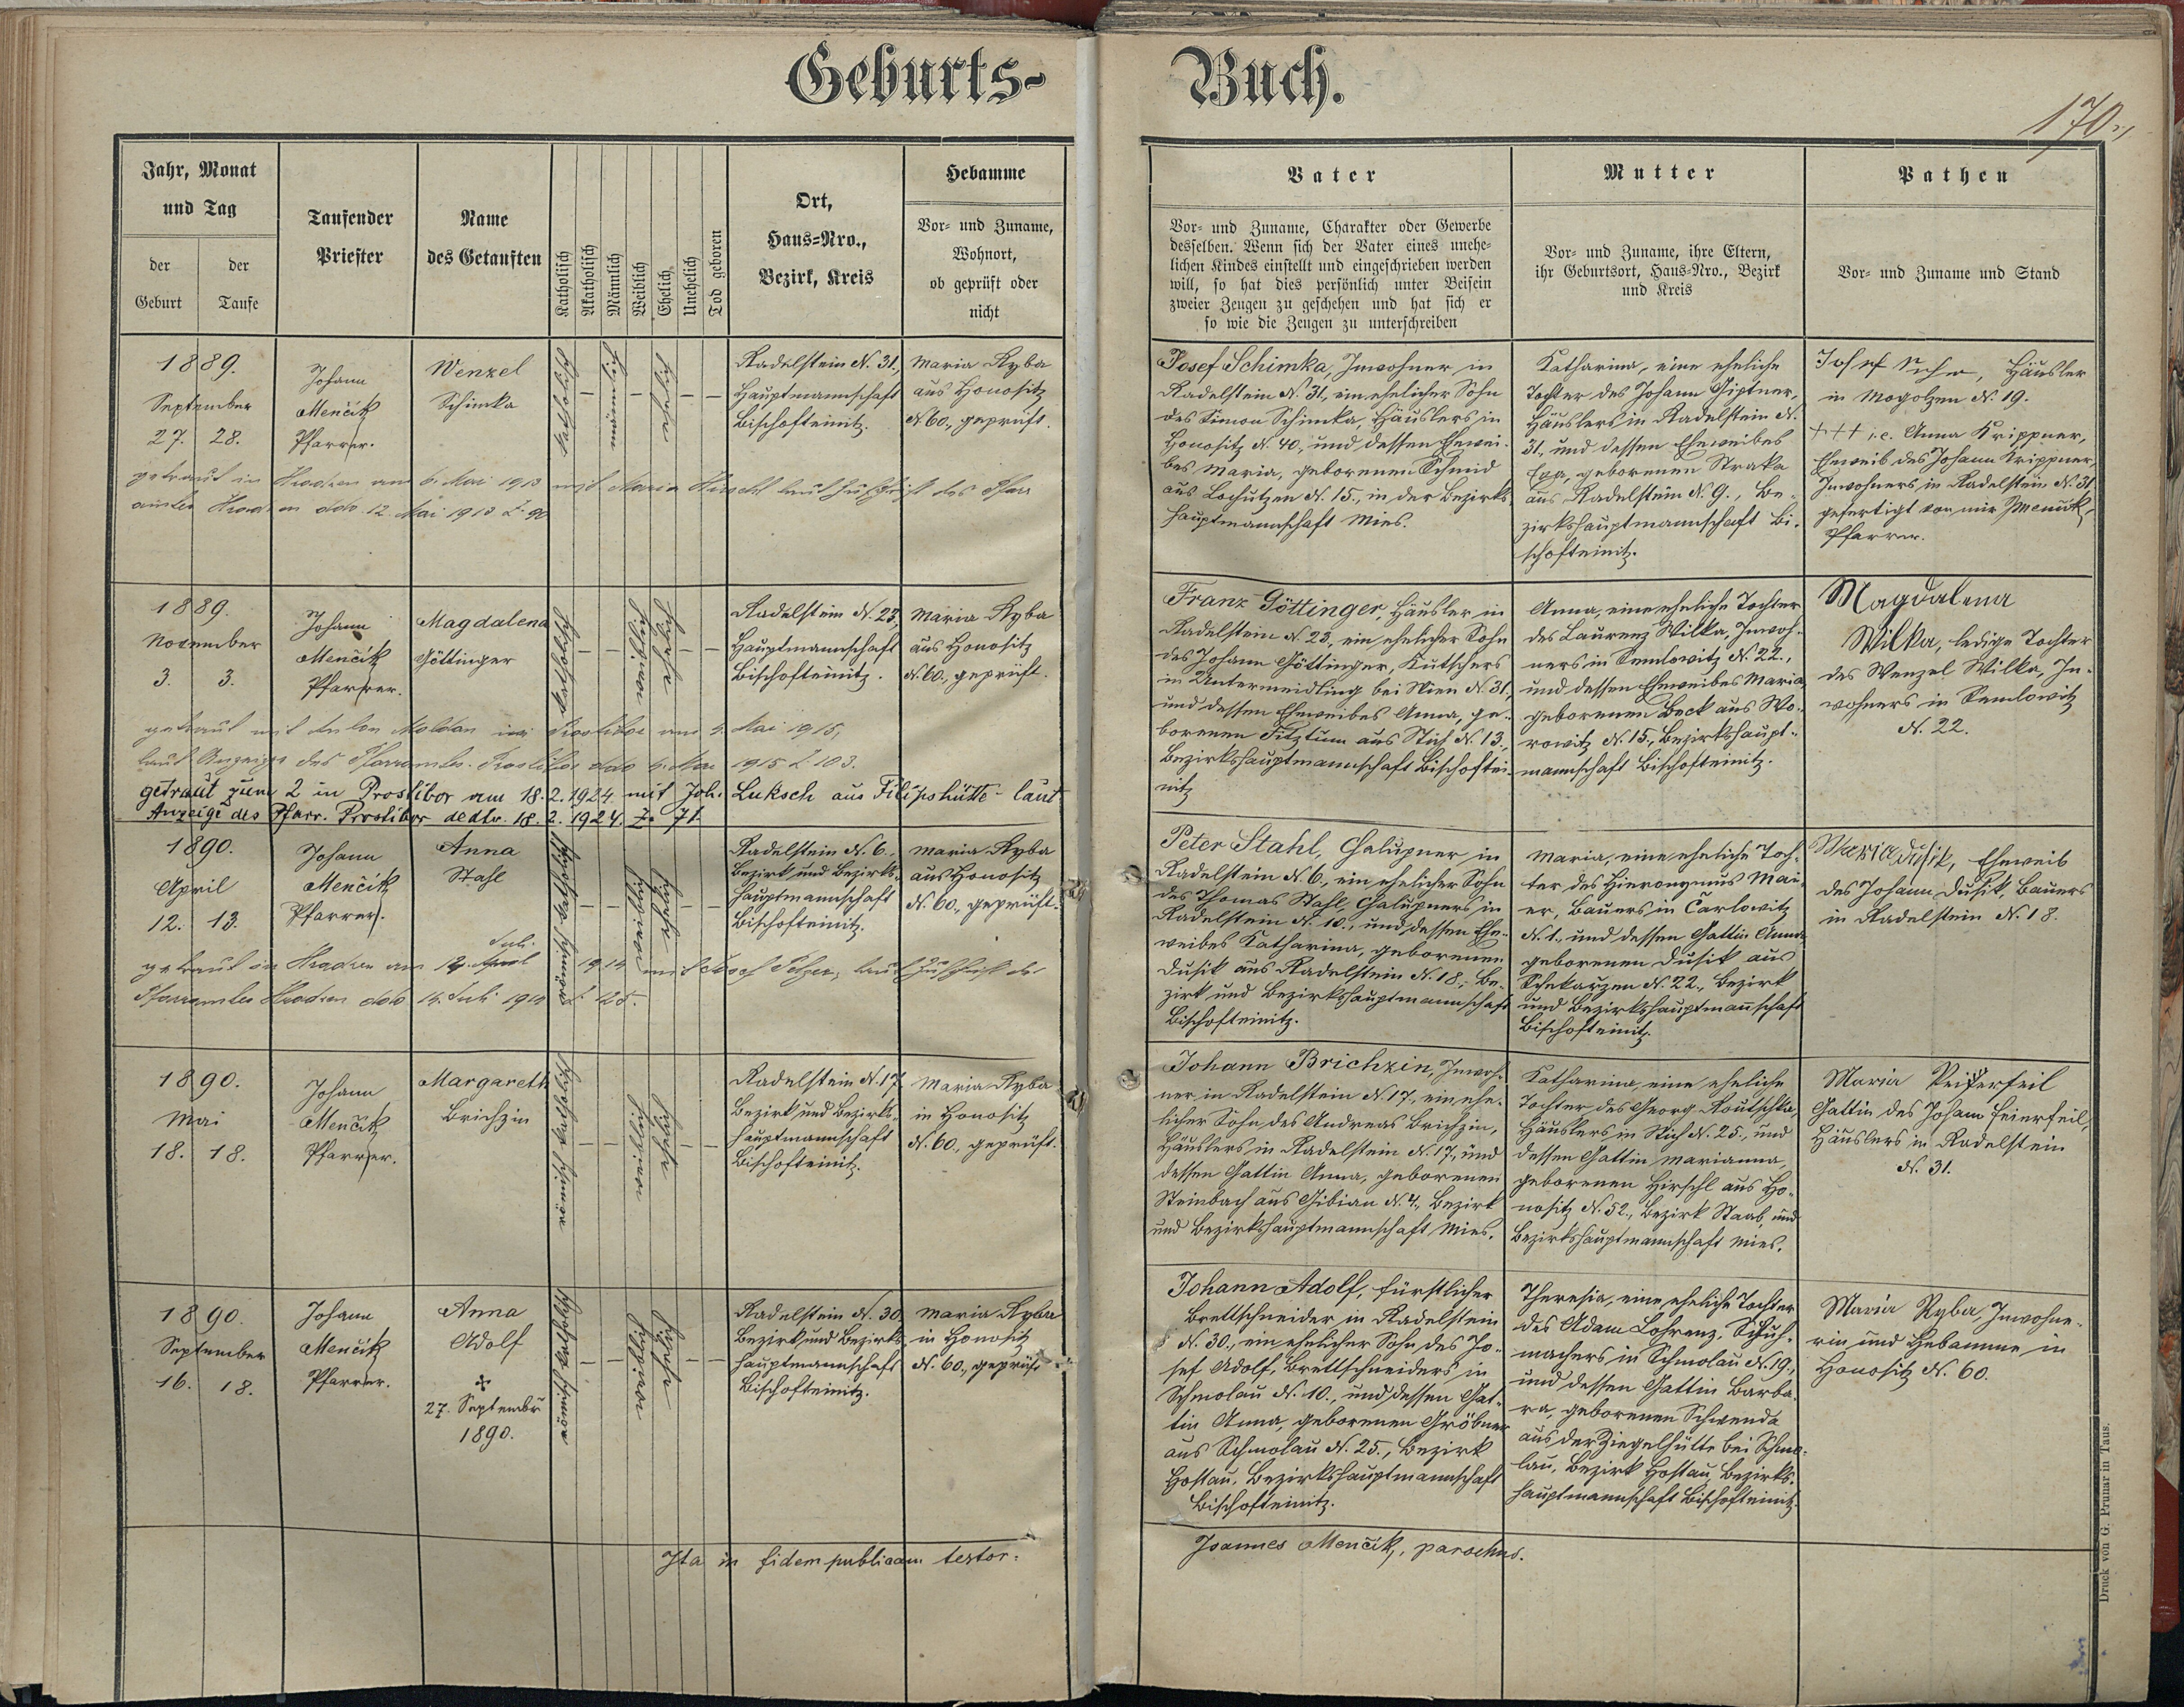 Geburts-
Buch.
170.
Jahr, Monat
und Tag
der
Geburt
der
Taufe
Taufender
Priester
Name
des Getauften
Katholisch
Akatholisch
Männlich
Weiblich
Ehelich
Unehelich
Tod geboren
Ort,
Haus-Nro.,
Bezirk, Kreis
Hebamme
Vor- und Zuname,
Wohnort,
ob geprüft oder
nicht
Vater
Vor- und Zuname, Charakter oder Gewerbe
desselben. Wenn sich der Vater eines unehe-
lichen Kindes einstellt und eingeschrieben werden
will, so hat dies persönlich unter Beisein
zweier Zeugen zu geschehen und hat sich er
so wie die Zeugen zu unterschreiben
Mutter
Vor- und Zuname, ihre Eltern,
ihr Geburtsort, Haus-Nro., Bezirk
und Kreis
Pathen
Vor- und Zuname und Stand
1889.
September
27. 28.
Johann
Menčik
Pfarrer.
Wenzel
Schimka
katholisch
männlich
ehelich
Radelstein N. 31,
Hauptmannschaft
Bischofteinitz.
Maria Ryba
aus Honositz
N. 60., geprüft.
Josef Schimka, Inwohner in
Radelstein N. 31, ein ehelicher Sohn
des Simon Schimka, Häuslers in
Honositz N. 40., und dessen Ehewei-
bes Maria, geborenen Schmid
aus Lochutzen N. 15., in der Bezirks-
hauptmannschaft Mies.
Katharina, eine eheliche
Tochter des Johann Giptner,
Häuslers in Radelstein N.
31, und dessen Eheweibes
Eva, geborenen Straka
aus Radelstein N. 9., Be-
zirkshauptmannschaft Bi-
schofteinitz.
Josef, Häusler
in Mogolzen N. 19.
+++ i.e. Anna Krippner,
Eheweib des Johann Krippner,
Inwohners in Radelstein N. 31
gefertigt von mir JMenčik,
Pfarrer.
getraut in Hradzen am 6. Mai 1913 mit Maria Hirschl laut Zuschrift des Pfarr
amtes Hradzen ddo 12. Mai 1913 Z. 90
1889.
November
3. 3.
Johann
Menčik
Pfarrer.
Magdalena
Göttinger
katholisch
weiblich
ehelich
Radelstein N. 23,
Hauptmannschaft
Bischofteinitz.
Maria Ryba
aus Honositz
N. 60., geprüft.
Franz Göttinger, Häusler in
Radelstein N. 23, ein ehelicher Sohn
des Johann Göttinger, Kutschers
in Untermeidling bei Wien N. 31,
und dessen Eheweibes Anna, ge-
borenen Fitztum aus Stich N. 13.,
Bezirkshauptmannschaft Bischoftei-
nitz
Anna, eine eheliche Tochter
des Laurenz Wilka, Inwoh-
ners in Semlowitz N. 22.,
und dessen Eheweibes Maria,
geborenen Beck aus Wo-
rowitz N. 15., Bezirkshaupt-
mannschaft Bischofteinitz.
Magdalena
Wilka, ledige Tochter
des Wenzel Wilka, In-
wohners in Semlowitz
N. 22.
getraut mit Anton Moldan in Prostibor am 4. Mai 1915,
laut Anzeige des Pfarramtes Prostibor ddo 6. Mai 1915 Z. 103.
getraut zum 2 in Prostibor am 18. 2. 1924 mit Joh. Luksch aus Filipshütte - laut
Anzeige des Pfarr. Prostibor dedto. 18. 2. 1924. Z. 71
1890.
April
12. 13.
Johann
Menčik
Pfarrer.
Anna
Stahl
römisch katholisch
weiblich
ehelich
Radelstein N. 6.,
Bezirk und Bezirks-
hauptmannschaft
Bischofteinitz.
Maria Ryba
aus Honositz
N. 60., geprüft.
Peter Stahl, Chalupner in
Radelstein N. 6., ein ehelicher Sohn
des Thomas Stahl, Chalupners in
Radelstein N. 10., und dessen Ehe-
weibes Katharina, geborenen
Dusik aus Radelstein N. 18., Be-
zirk und Bezirkshauptmannschaft
Bischofteinitz.
Maria, eine eheliche Toch-
ter des Hieronymus Mai-
er, Bauers in Čarlowitz
N. 1., und dessen Gattin Anna,
geborenen Dusik aus
Schekarzen N. 22., Bezirk
und Bezirkshauptmannschaft
Bischofteinitz.
Maria Dusik, Eheweib
des Johann Dusik, Bauers
in Radelstein N. 18.
Juli
getraut in Hradzen am 14. April 1914 mit Josef Selzer, laut Zuschrift des
Pfarramtes Hradzen ddo 14. Juli 1914 Z. 125.
1890.
Mai
18. 18.
Johann
Menčik
Pfarrer.
Margareth
Brichzin
römisch katholisch
weiblich
ehelich
Radelstein N. 17,
Bezirk und Bezirks-
hauptmannschaft
Bischofteinitz.
Maria Ryba
in Honositz
N. 60., geprüft.
Johann Brichzin, Inwoh-
ner in Radelstein N. 17., ein ehe-
licher Sohn des Andreas Brichzin,
Häuslers in Radelstein N. 17., und
dessen Gattin Anna, geborenen
Steinbach aus Gibian N. 4., Bezirk
und Bezirkshauptmannschaft Mies.
Katharina, eine eheliche
Tochter des Georg Koutschka,
Häuslers in Stich N. 25., und
dessen Gattin Marianna,
geborenen Hirschl aus Ho-
nositz N. 52., Bezirk Staab, und
Bezirkshauptmannschaft Mies.
Maria Feierfeil
Gattin des Johann Feierfeil,
Häuslers in Radelstein
N. 31.
1890.
September
16. 18.
Johann
Menčik
Pfarrer.
Anna
Adolf
✠
27. September
1890.
römisch katholisch
weiblich
ehelich
Radelstein N. 30,
Bezirk und Bezirks-
hauptmannschaft
Bischofteinitz.
Maria Ryba
in Honositz
N. 60., geprüft
Johann Adolf, fürstlicher
Brettschneider in Radelstein
N. 30., ein ehelicher Sohn des Jo-
sef Adolf, Brettschneiders in
Schmolau N. 10., und dessen Gat-
tin Anna, geborenen Gröbner
aus Schmolau N. 25., Bezirk
Hostau, Bezirkshauptmannschaft
Bischofteinitz.
Theresia, eine eheliche Tochter
des Adam Lohrenz, Schuh-
machers in Schmolau N. 19.,
und dessen Gattin Barba-
ra, geborenen Schwenda
aus der Ziegelhütte bei Schmo-
lau, Bezirk Hostau, Bezirks-
hauptmannschaft Bischofteinitz.
Maria Ryba, Inwohne-
rin und Hebamme in
Honositz N. 60.
Ita in fidem publicam testor:
Joannes Menčik, parochus.
Druck von G. Prunar in Taus.